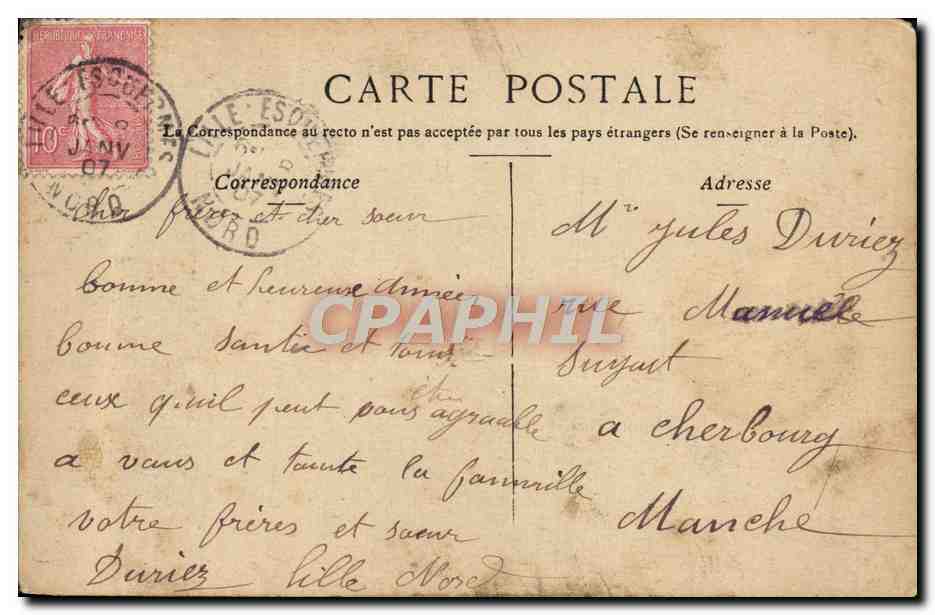 REPUBLIQUE FRANÇAISE
10c
LILLE-ESQUERMES
JANV
07
NORD
LILLE-ESQUERMES
JANV
07
NORD
CARTE POSTALE
La Correspondance au recto n'est pas acceptée par tous les pays étrangers (Se renseigner à la Poste).
Correspondance
Adresse
cher frères et cher soeur
bonne et heureuse Année
bonne santie et tous
ceux q'uil peut vous être agraable
a vous et toute la famille
votre frères et soeur
Duriez lille Nord
Mr Jules Duriez
rue
a cherbourg
Manche
CPAPHIL